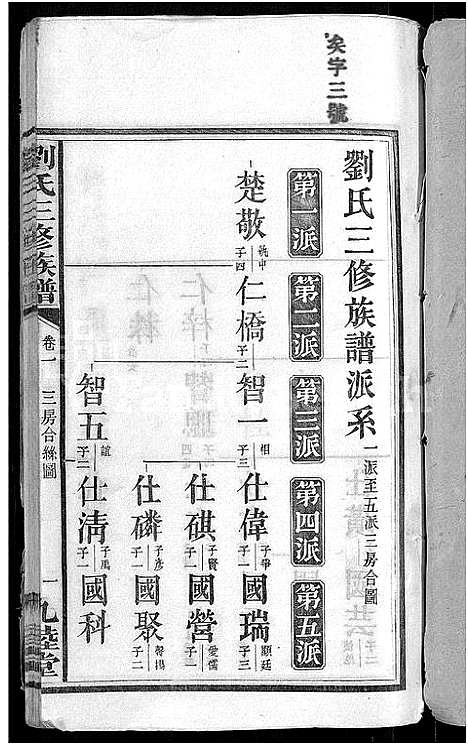 矣字三號
劉氏三修族譜派系 一派至五派三房合圖
第一派 第二派 第三派 第四派 第五派
楚敬 子四 仁橋 子二 智一 相 子三 仕偉 子華 子一 國瑞 顯廷 子三
仕礏 子賢 子一 國營 愛儒 子二
仕磷 子彥 子一 國聚 馨揚 子二
智五 誼 子二 仕清 子禹 子一 國科
劉氏三修族譜 卷一 三房合絲圖 一 九睦堂